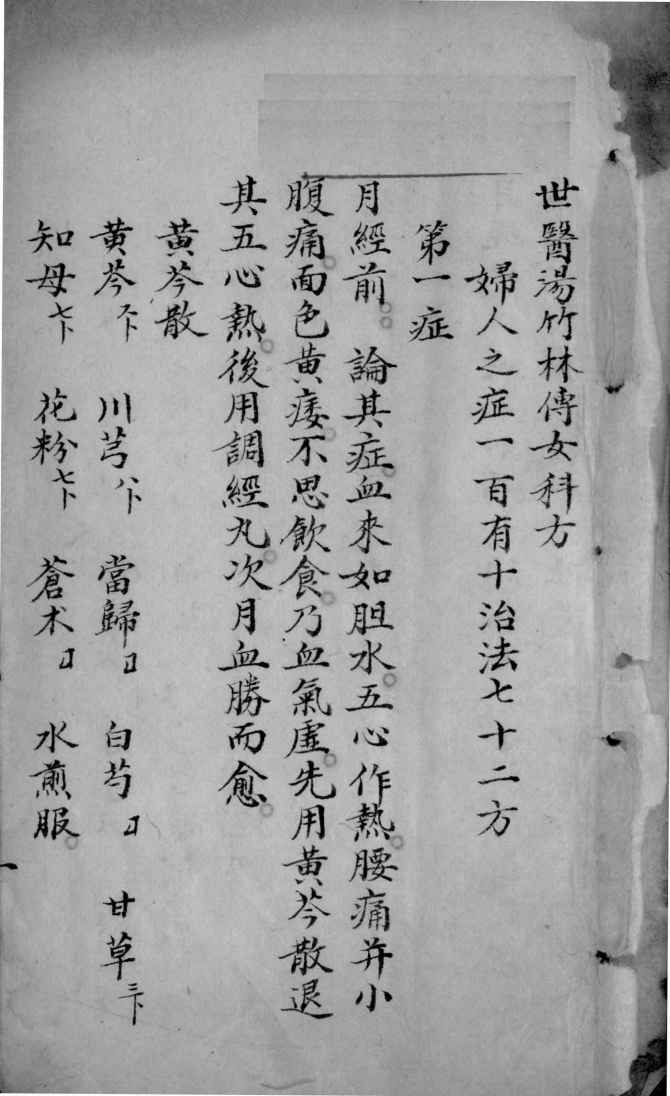 世醫湯竹林傳女科方
婦人之症一百有十治法七十二方
第一症
月經前 論其症血來如胆水五心作熱腰痛并小
腹痛面色黄痿不思飲食乃血氣虛先用黄芩散退
其五心熱後用調經丸次月血勝而愈
黄芩散
黄芩 川芎 當歸 白芍 甘草
知母 花粉 蒼术 水煎服